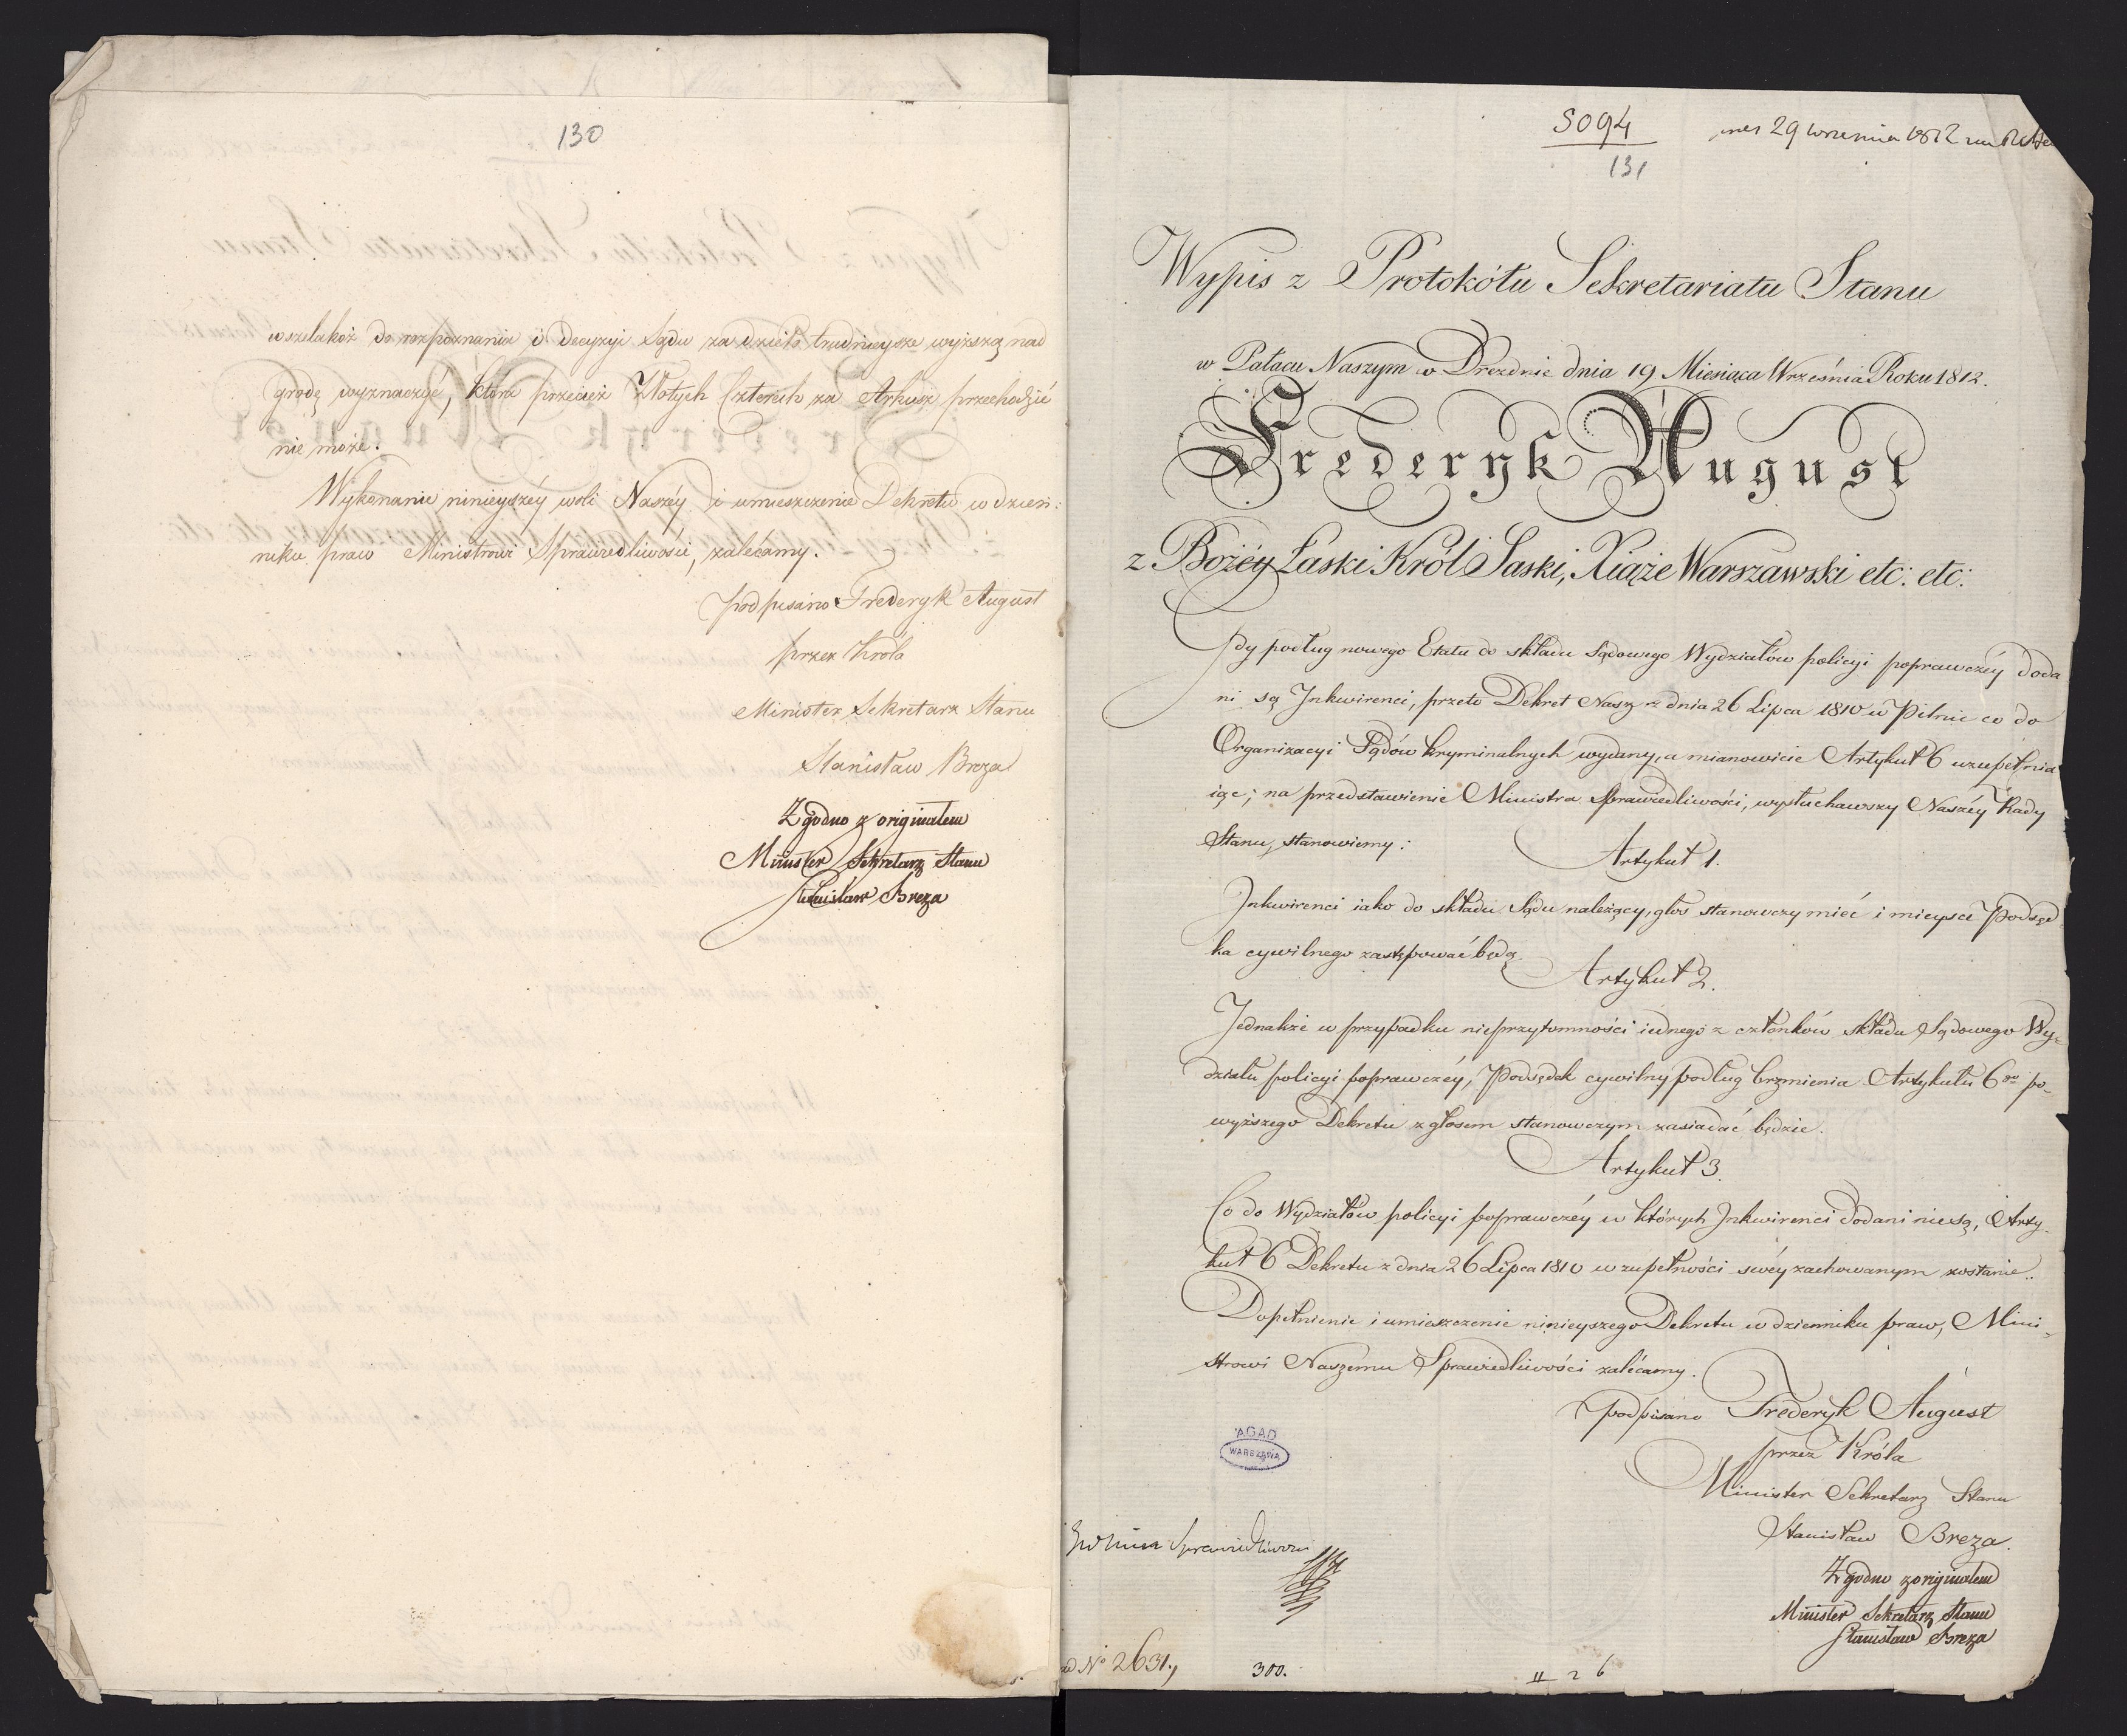 130
wszelakoż do rozpoznania i decyzyi Sądu za dzieło trudnieysze wyższą nad
grodę wyznaczyć, która przecież Złotych Czterech za Arkusz przechodzić
nie może.
Wykonanie ninieyszéy woli Naszéy i umieszczenie Dekretu w dzien:
niku praw Ministrowi Sprawiedliwości, zalécamy.
podpisano Frederyk August
przez Króla
Minister Sekretarz Stanu
Stanisław Breza
Zgodno z originałem
Minister Sekretarz Stanu
Stanisław Breza
5094
131
29 września 1812
Wypis z Protokółu Sekretariatu Stanu
w Pałacu Naszym w Dreznie dnia 19 Miesiąca Września Roku 1812.
Frederyk August
z Bożéy Łaski Król Saski, Xiąże Warszawski etc: etc:
Gdy podług nowego Etatu do składu sądowego Wydziałów policyi poprawczéy doda
ni są Inkwirenci, przeto Dekret Nasz z dnia 26 Lipca 1810 w Pilnic co do
Organizacyi Sądów kryminalnych wydany, a mianowicie Artykuł 6 uzupełnia
iąc; na przedstawienie Ministra Sprawiedliwości, wysłuchawszy Naszéy Rady
Stanu, stanowiemy:
Artykuł 1.
Inkwirenci iako do składu Sądu należący, głos stanowczy mieć i mieysce Podsęd
ka cywilnego zastępować będą.
Artykuł 2.
Jednakże w przypadku nieprzytomności iednego z członków składu Sądowego Wy-
działu policyi poprawczéy, Podsędek cywilny podług brzmienia Artykułu 6go po-
wyższego Dekretu z głosem stanowczym zasiadać będzie.
Artykuł 3.
Co do Wydziałów policyi poprawczéy w których Inkwirenci dodani nie są, Arty-
kuł 6 Dekretu z dnia 26 Lipca 1810 w zupełności swéy zachowanym zostanie.
Dopełnienie i umieszczenie ninieyszego Dekretu w dzienniku praw, Mini-
strowi Naszému Sprawiedliwości zalécamy.
Podpisano Frederyk August
przez Króla
Minister Sekretarz Stanu
Stanisław Breza.
Zgodno z originałem
Minister Sekretarz Stanu
Stanisław Breza
AGAD
WARSZAWA
Sprawiedliwości
No 2631.
300.
II 26